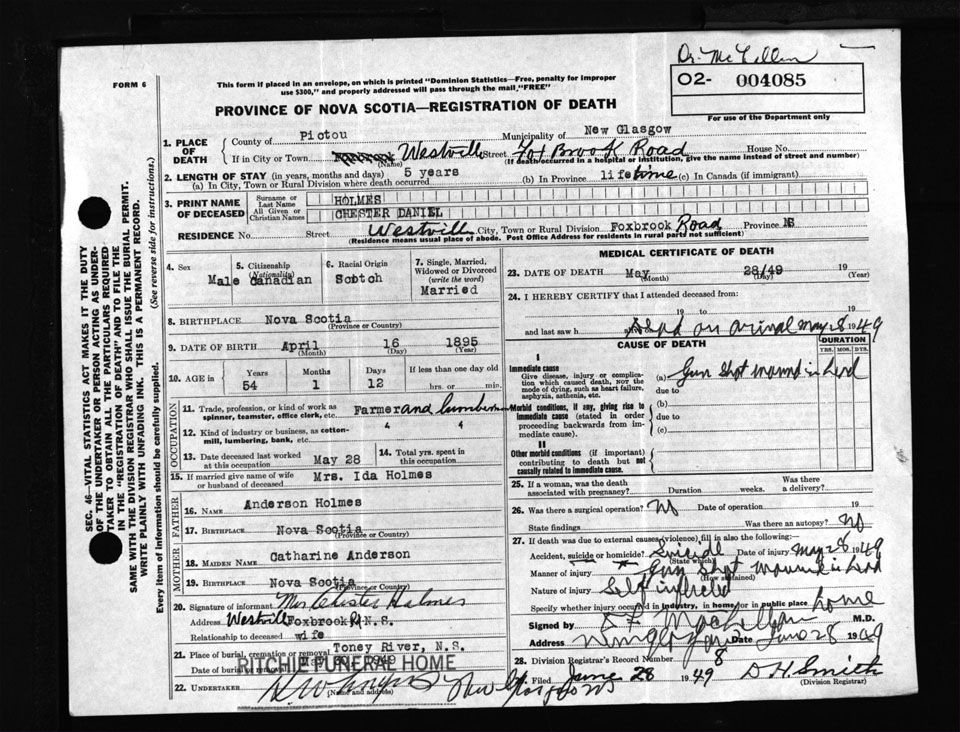 Dr. McLellan
FORM 6
This form if placed in an envelope, on which is printed "Dominion Statistics—Free, penalty for improper
use $300," and properly addressed will pass through the mail "FREE"
O2- 004085
For use of the Department only
PROVINCE OF NOVA SCOTIA—REGISTRATION OF DEATH
SEC. 46—VITAL STATISTICS ACT MAKES IT THE DUTY
OF THE UNDERTAKER OR PERSON ACTING AS UNDER-
TAKER TO OBTAIN ALL THE PARTICULARS REQUIRED
IN THE "REGISTRATION OF DEATH" AND TO FILE THE
SAME WITH THE DIVISION REGISTRAR WHO SHALL ISSUE THE BURIAL PERMIT.
WRITE PLAINLY WITH UNFADING INK. THIS IS A PERMANENT RECORD.
(See reverse side for instructions.)
Every item of information should be carefully supplied.
1. PLACE OF DEATH
County of Pictou Municipality of New Glasgow
If in City or Town Foxbrook Westville Street Fox Brook Road House No.
(Name) (If death occurred in a hospital or institution, give the name instead of street and number)
2. LENGTH OF STAY (in years, months and days)
(a) In City, Town or Rural Division where death occurred 5 years (b) In Province life time (c) In Canada (if immigrant)
3. PRINT NAME OF DECEASED
Surname or Last Name HOLMES
All Given or Christian Names CHESTER DANIEL
RESIDENCE No. Street Westville City, Town or Rural Division Foxbrook Road Province NS
(Residence means usual place of abode. Post Office Address for residents in rural parts not sufficient)
4. Sex Male
5. Citizenship (Nationality) Canadian
6. Racial Origin Scotch
7. Single, Married, Widowed or Divorced (write the word) Married
8. BIRTHPLACE Nova Scotia
(Province or Country)
9. DATE OF BIRTH April 16 1895
(Month) (Day) (Year)
10. AGE in Years Months Days If less than one day old
54 1 12 hrs. or min.
OCCUPATION
11. Trade, profession, or kind of work as spinner, teamster, office clerk, etc. Farmer and lumberman
12. Kind of industry or business, as cotton-mill, lumbering, bank, etc.
13. Date deceased last worked at this occupation May 28
14. Total yrs. spent in this occupation
15. If married give name of wife or husband of deceased Mrs. Ida Holmes
FATHER
16. NAME Anderson Holmes
17. BIRTHPLACE Nova Scotia
(Province or Country)
MOTHER
18. MAIDEN NAME Catharine Anderson
19. BIRTHPLACE Nova Scotia
(Province or Country)
20. Signature of informant Mrs Chester Holmes
Address Westville Foxbrook Rd N.S.
Relationship to deceased wife
21. Place of burial, cremation or removal Toney River, N.S.
Date of burial 1949
RITCHIE FUNERAL HOME
22. UNDERTAKER New Glasgow NS
(Name and address)
MEDICAL CERTIFICATE OF DEATH
23. DATE OF DEATH May 28/49 19
(Month) (Day) (Year)
24. I HEREBY CERTIFY that I attended deceased from:
19 to 19
and last saw h Dead on arrival May 28 1949
CAUSE OF DEATH
DURATION
YRS. MOS. DYS.
I
Immediate cause
Give disease, injury or complication which caused death, NOT the mode of dying, such as heart failure, asphyxia, asthenia, etc.
(a) Gun shot wound in head
due to
Morbid conditions, if any, giving rise to immediate cause (stated in order proceeding backwards from immediate cause).
(b)
due to
(c)
II
Other morbid conditions (if important) contributing to death but not causally related to immediate cause.
25. If a woman, was the death associated with pregnancy? Duration weeks. Was there a delivery?
26. Was there a surgical operation? No Date of operation 19
State findings Was there an autopsy? No
27. If death was due to external causes (violence) fill in also the following:
Accident, suicide or homicide? Suicide Date of injury May 28 1949
(State which)
Manner of injury Gun shot wound in head
(How sustained)
Nature of injury Self inflicted
Specify whether injury occurred in industry, in home, or in public place home
Signed by M.D.
Address New Glasgow Date June 28 1949
28. Division Registrar's Record Number 8
Filed June 28 1949 D H Smith
(Division Registrar)